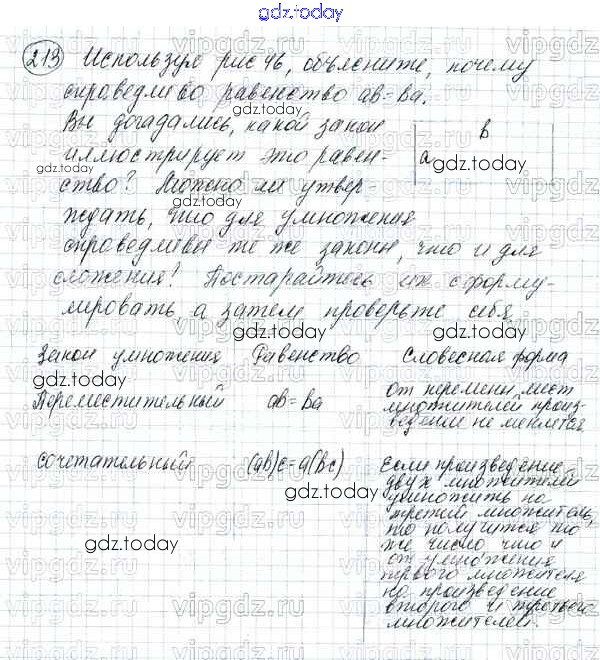 gdz.today
213 Используя рис 46, объясните, почему
справедливо равенство ab=ba.
Вы догадались, какой закон
иллюстрирует это равен-
ство? Можно ли утвер-
ждать, что для умножения
справедливы те же законы, что и для
сложения? Постарайтесь их сформу-
лировать, а затем проверьте себя.
b
a
Закон умножения Равенство Словесная форма
Переместительный ab=ba От перемены мест
множителей произ-
ведение не меняется.
сочетательный (ab)c=a(bc) Если произведение
двух множителей
умножить на
третий множитель,
то получится то
же число, что и
от умножения
первого множителя
на произведение
второго и третьего
множителей.
gdz.today
vipgdz.ru